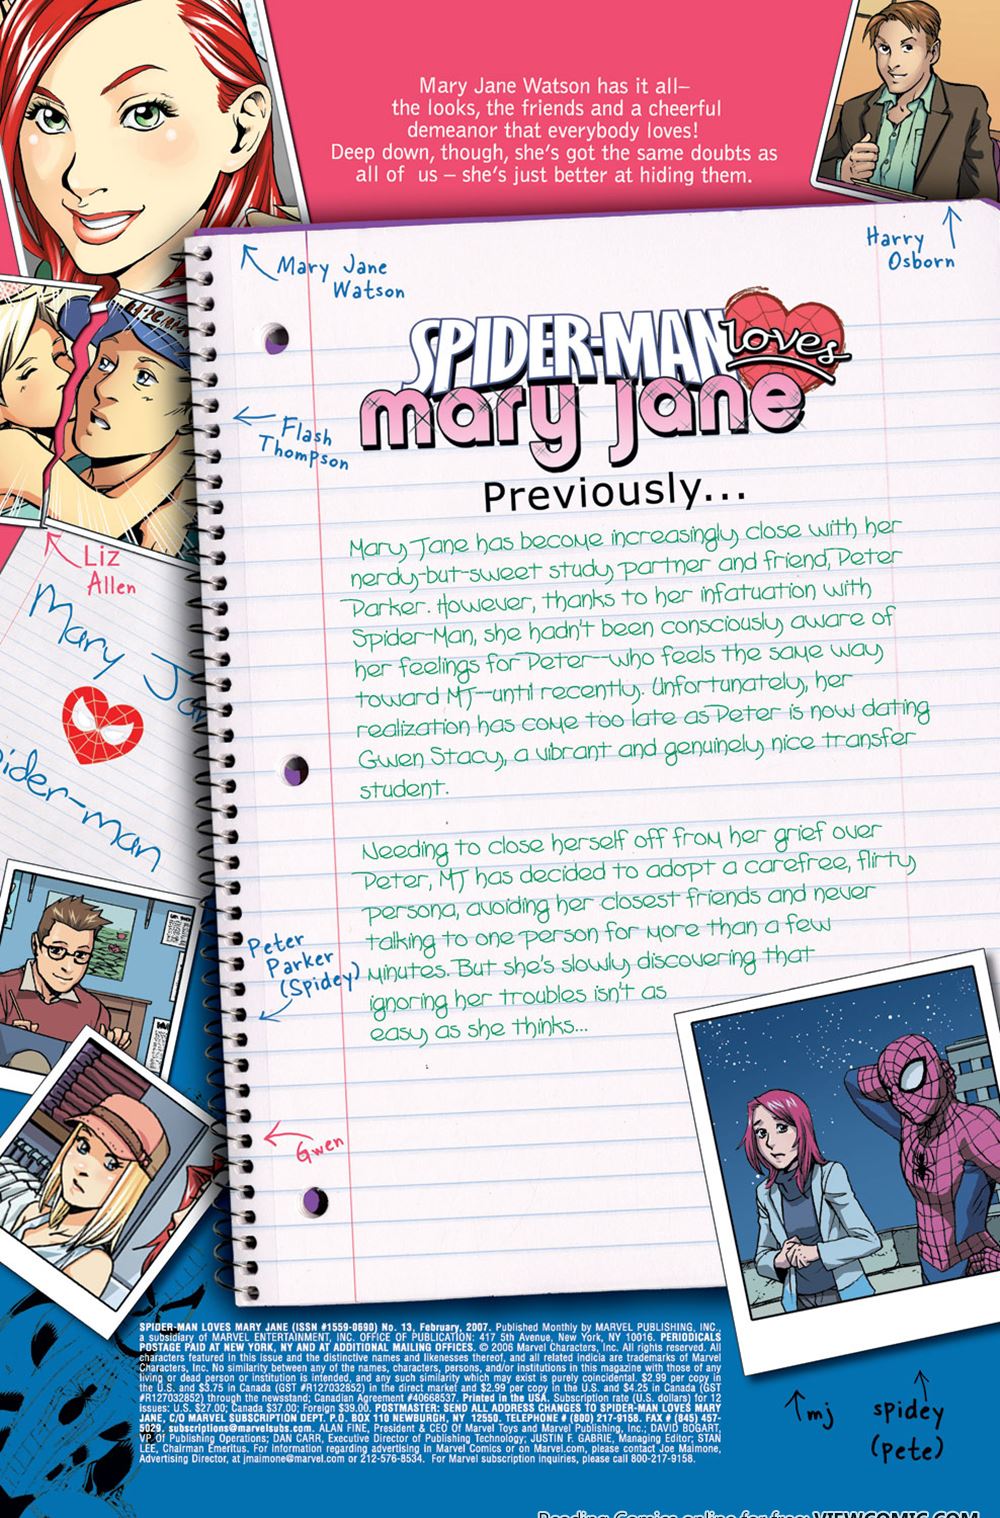 Mary Jane Watson has it all–
the looks, the friends and a cheerful
demeanor that everybody loves!
Deep down, though, she's got the same doubts as
all of us – she's just better at hiding them.
Harry
Osborn
Mary Jane
Watson
SPIDER-MAN loves
mary jane
Flash
Thompson
Previously...
Liz
Allen
Mary Jane has become increasingly close with her
nerdy-but-sweet study partner and friend, Peter
Parker. However, thanks to her infatuation with
Spider-Man, she hadn't been consciously aware of
her feelings for Peter--who feels the same way
toward MJ--until recently. Unfortunately, her
realization has come too late as Peter is now dating
Gwen Stacy, a vibrant and genuinely nice transfer
student.
Mary Ja
pider-man
Needing to close herself off from her grief over
Peter, MJ has decided to adopt a carefree, flirty
persona, avoiding her closest friends and never
talking to one person for more than a few
minutes. But she's slowly discovering that
ignoring her troubles isn't as
easy as she thinks...
Peter
Parker
(Spidey)
Gwen
SPIDER-MAN LOVES MARY JANE (ISSN #1559-0690) No. 13, February, 2007. Published Monthly by MARVEL PUBLISHING, INC.,
a subsidiary of MARVEL ENTERTAINMENT, INC. OFFICE OF PUBLICATION: 417 5th Avenue, New York, NY 10016. PERIODICALS
POSTAGE PAID AT NEW YORK, NY AND AT ADDITIONAL MAILING OFFICES. © 2006 Marvel Characters, Inc. All rights reserved. All
characters featured in this issue and the distinctive names and likenesses thereof, and all related indicia are trademarks of Marvel
Characters, Inc. No similarity between any of the names, characters, persons, and/or institutions in this magazine with those of any
living or dead person or institution is intended, and any such similarity which may exist is purely coincidental. $2.99 per copy in
the U.S. and $3.75 in Canada (GST #R127032852) in the direct market and $2.99 per copy in the U.S. and $4.25 in Canada (GST
#R127032852) through the newsstand; Canadian Agreement #40668537. Printed in the USA. Subscription rate (U.S. dollars) for 12
issues: U.S. $27.00; Canada $37.00; Foreign $39.00. POSTMASTER: SEND ALL ADDRESS CHANGES TO SPIDER-MAN LOVES MARY
JANE, C/O MARVEL SUBSCRIPTION DEPT. P.O. BOX 110 NEWBURGH, NY 12550. TELEPHONE # (800) 217-9158. FAX # (845) 457-
5029. subscriptions@marvelsubs.com. ALAN FINE, President & CEO Of Marvel Toys and Marvel Publishing, Inc.; DAVID BOGART,
VP Of Publishing Operations; DAN CARR, Executive Director of Publishing Technology; JUSTIN F. GABRIE, Managing Editor; STAN
LEE, Chairman Emeritus. For information regarding advertising in Marvel Comics or on Marvel.com, please contact Joe Maimone,
Advertising Director, at jmaimone@marvel.com or 212-576-8534. For Marvel subscription inquiries, please call 800-217-9158.
mj
spidey
(pete)
Reading Comics online for free: VIEWCOMIC.COM